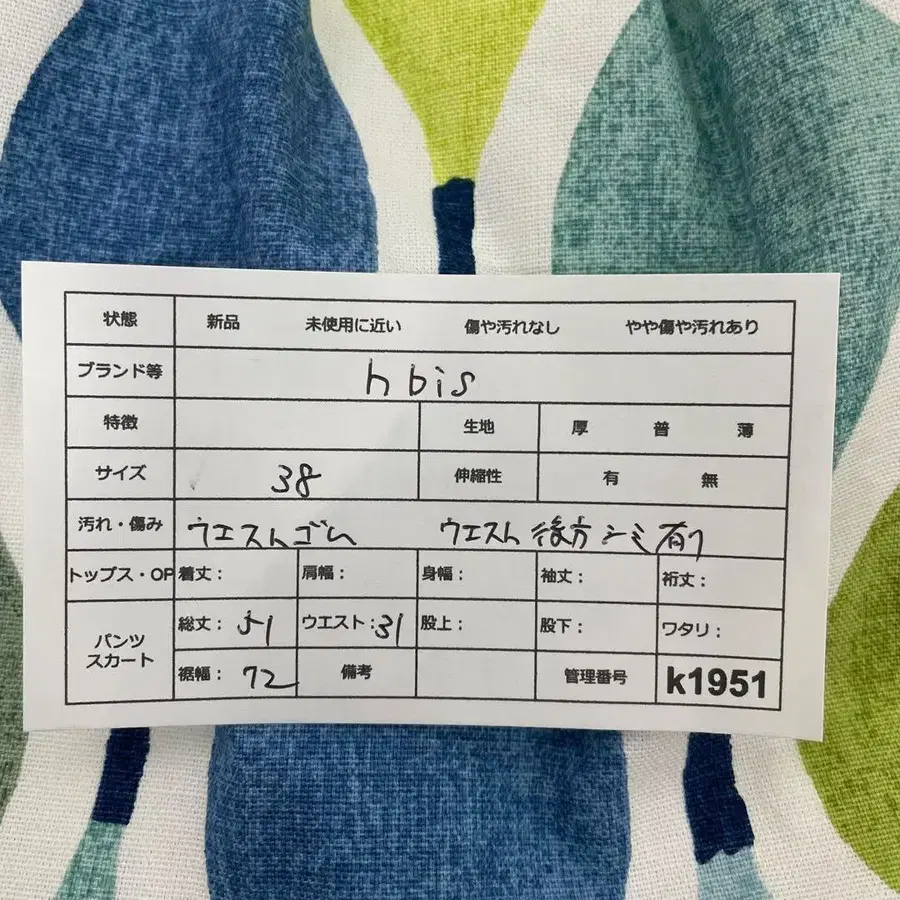 状態 新品 未使用に近い 傷や汚れなし やや傷や汚れあり
ブランド等 h bis
特徴 生地 厚 普 薄
サイズ 38 伸縮性 有 無
汚れ・傷み ウエストゴム ウエスト後方シミ有り
トップス・OP 着丈: 肩幅: 身幅: 袖丈: 裄丈:
パンツ スカート 総丈: 51 ウエスト:31 股上: 股下: ワタリ:
裾幅: 72 備考 管理番号 k1951